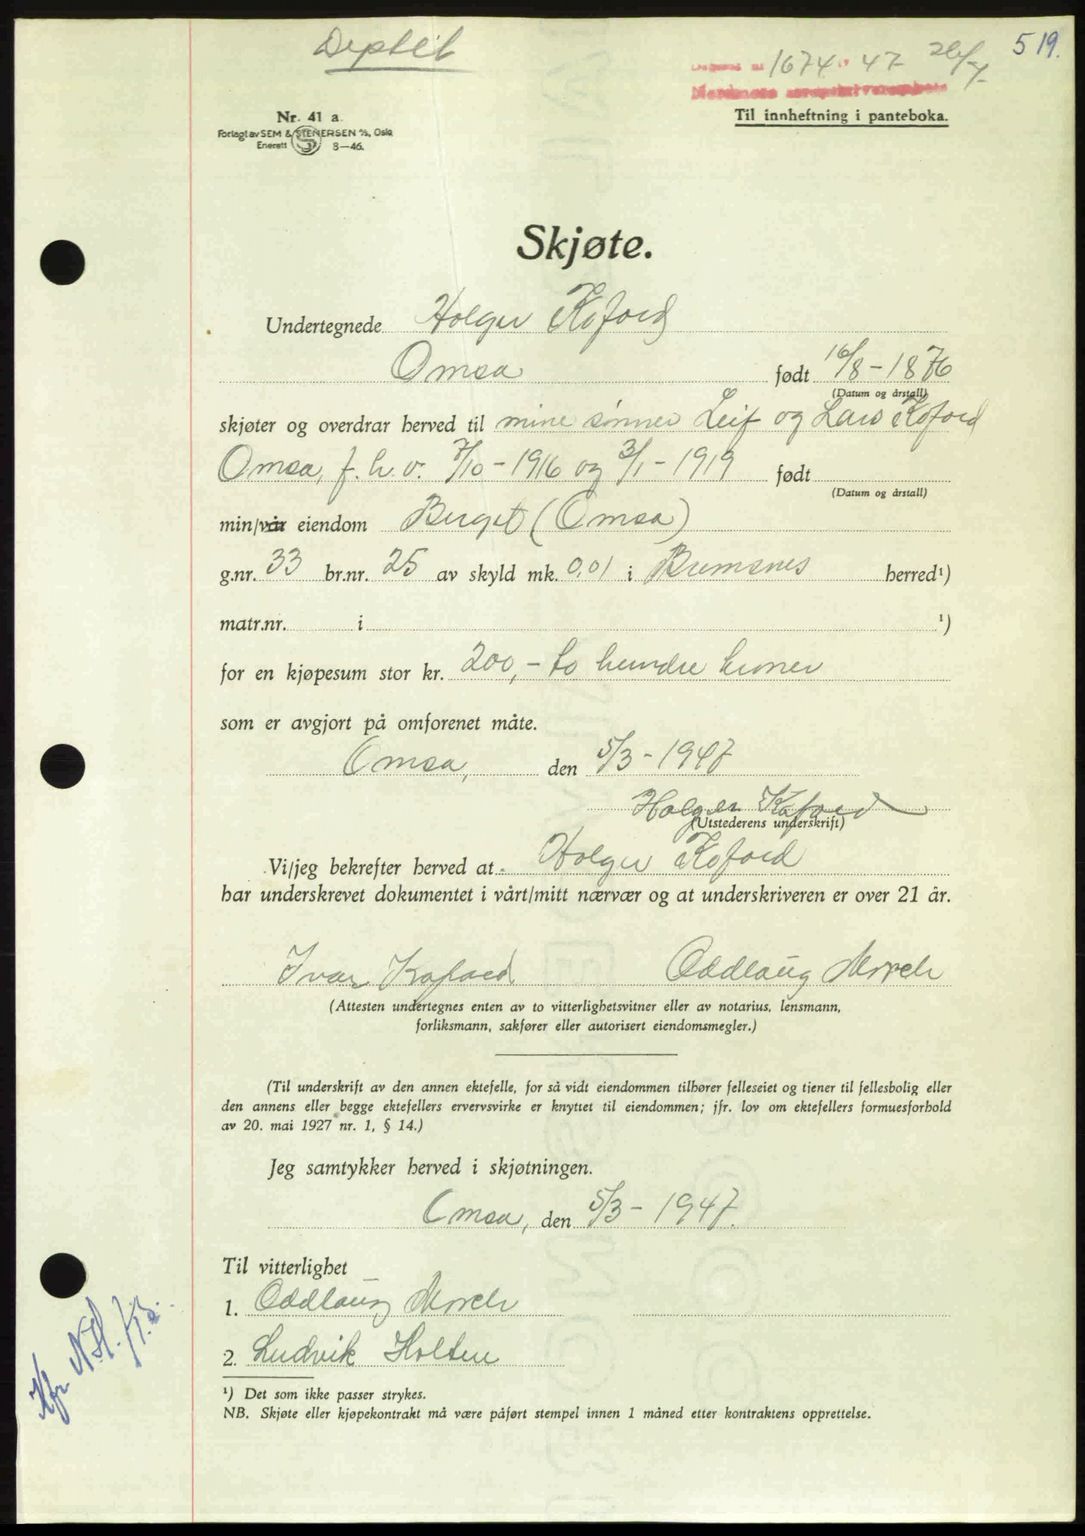 519.
Deplikt
1674 47 26/7
Nordmøre sorenskriverembete
Til innheftning i panteboka.
Nr. 41 a.
Forlagt av SEM & STENERSEN A/S, Oslo
Enerett 8-46.
Skjøte.
Undertegnede Holger Kofoed
Omsa født 16/8-1876
(Datum og årstall)
skjøter og overdrar herved til mine sønner Leif og Lars Kofoed
Omsa, f. h. v. 7/10-1916 og 3/1-1919 født
(Datum og årstall)
min/vår eiendom Berget (Omsa)
g.nr. 33 br.nr. 25 av skyld mk. 0,01 i Bremsnes herred¹)
matr.nr. i ¹)
for en kjøpesum stor kr. 200,- to hundre kroner
som er avgjort på omforenet måte.
Omsa, den 5/3-1947
Holger Kofoed
(Utstederens underskrift)
Vi/jeg bekrefter herved at Holger Kofoed
har underskrevet dokumentet i vårt/mitt nærvær og at underskriveren er over 21 år.
Ivar Kofoed Oddlaug
(Attesten undertegnes enten av to vitterlighetsvitner eller av notarius, lensmann,
forliksmann, sakfører eller autorisert eiendomsmegler.)
(Til underskrift av den annen ektefelle, for så vidt eiendommen tilhører felleseiet og tjener til fellesbolig eller
den annens eller begge ektefellers ervervsvirke er knyttet til eiendommen; jfr. lov om ektefellers formuesforhold
av 20. mai 1927 nr. 1, § 14.)
Jeg samtykker herved i skjøtningen.
Omsa, den 5/3-1947.
Til vitterlighet
1. Oddlaug
2. Ludvik Holten
¹) Det som ikke passer strykes.
NB. Skjøte eller kjøpekontrakt må være påført stempel innen 1 måned etter kontraktens opprettelse.